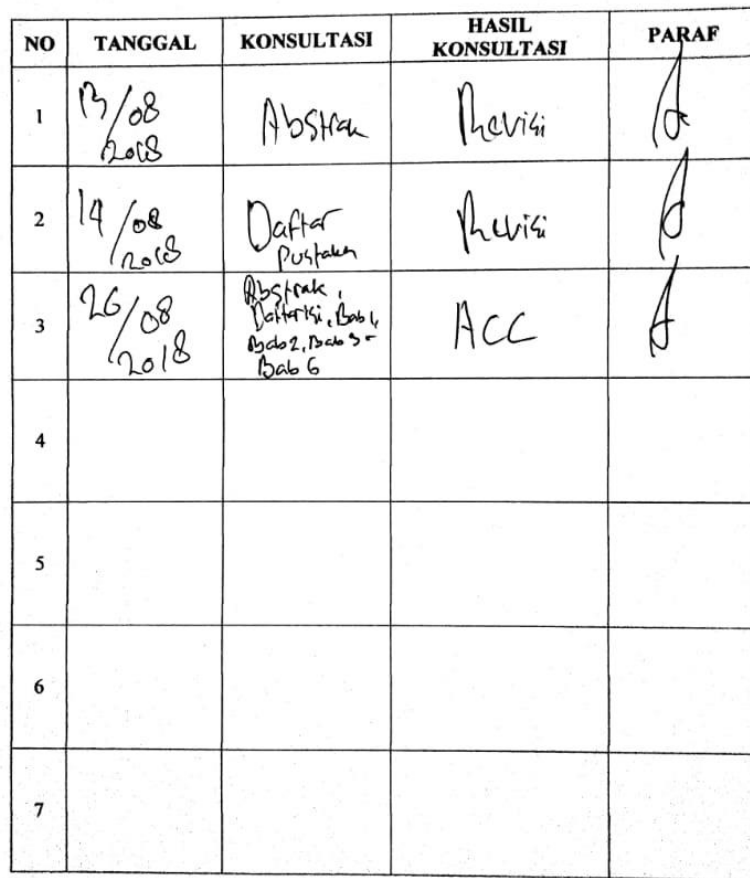 NO TANGGAL KONSULTASI HASIL KONSULTASI PARAF
1 13/08 2018 Abstrak Revisi
2 14/08 2018 Daftar Pustaka Revisi
3 26/08 2018 Abstrak, Daftar isi, Bab 1, Bab 2, Bab 3 - Bab 6 ACC
4
5
6
7